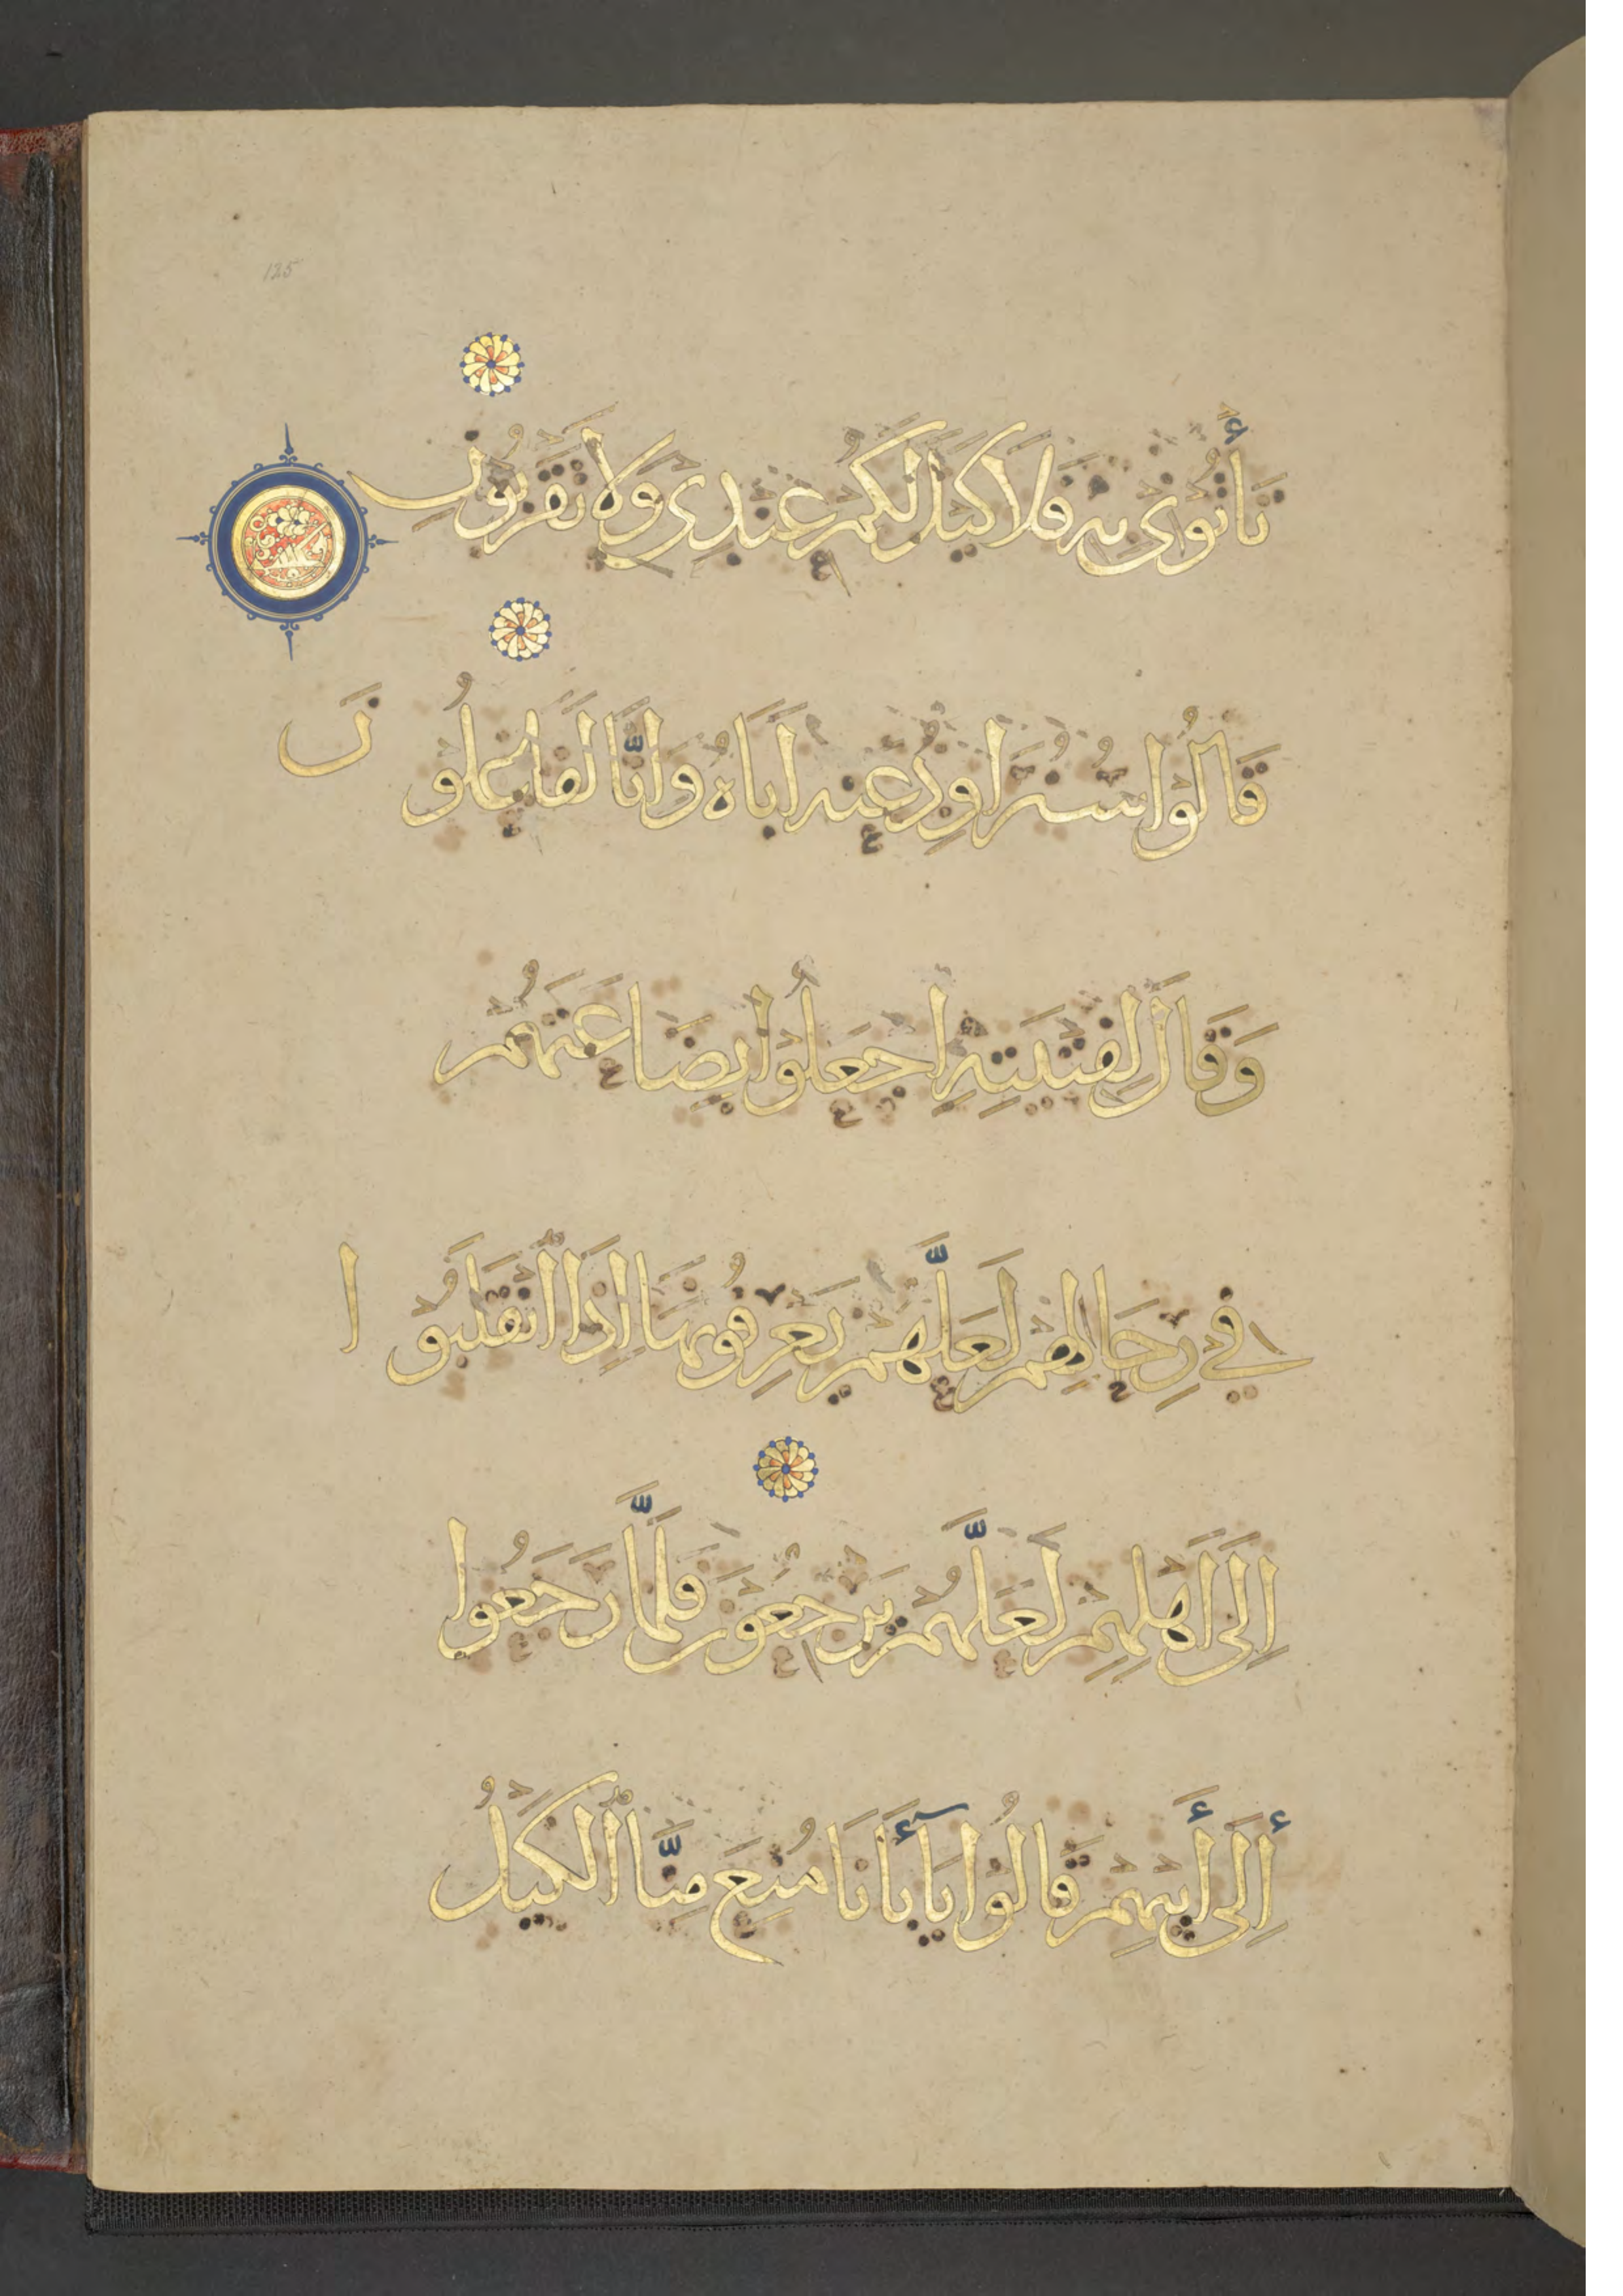 125
تَأْتُونِي بِهِ فَلَا كَيْلَ لَكُمْ عِنْدِي وَلَا تَقْرَبُونِ
قَالُوا سَنُرَاوِدُ عَنْهُ أَبَاهُ وَإِنَّا لَفَاعِلُونَ
وَقَالَ لِفِتْيَتِهِ اجْعَلُوا بِضَاعَتَهُمْ
فِي رِحَالِهِمْ لَعَلَّهُمْ يَعْرِفُونَهَا إِذَا انْقَلَبُوا
إِلَى أَهْلِهِمْ لَعَلَّهُمْ يَرْجِعُونَ فَلَمَّا رَجَعُوا
إِلَى أَبِيهِمْ قَالُوا يَا أَبَانَا مُنِعَ مِنَّا الْكَيْلُ